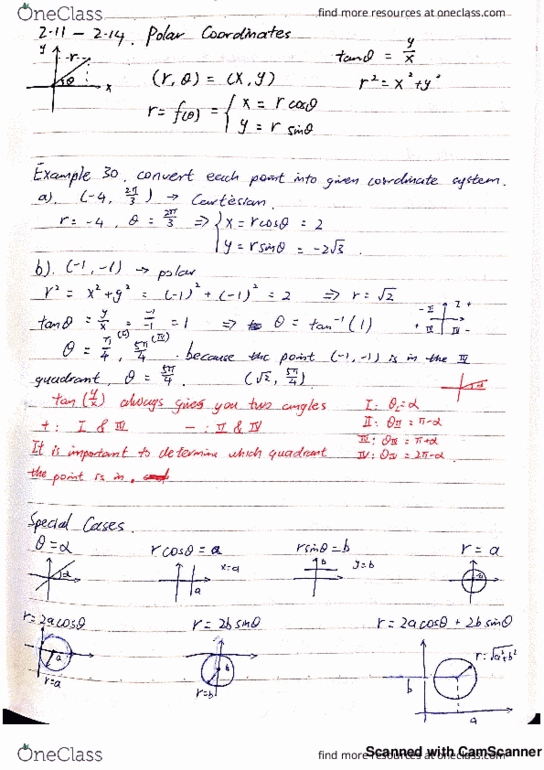 OneClass find more resources at oneclass.com
2.11 - 2.14. Polar Coordinates
y r θ x
tanθ = y/x
(r, θ) = (x, y) r² = x² + y²
r = f(θ) = { x = r cosθ
y = r sinθ
Example 30. convert each point into given coordinate system.
a). (-4, 2π/3) → Cartesian.
r = -4, θ = 2π/3 ⇒ { x = r cosθ = 2
y = r sinθ = -2√3.
b). (-1, -1) → polar
r² = x² + y² = (-1)² + (-1)² = 2 ⇒ r = √2
tanθ = y/x = -1/-1 = 1 ⇒ θ = tan⁻¹(1)
- II I +
+ III IV -
θ = π/4, 5π/4. because the point (-1, -1) is in the III
quadrant, θ = 5π/4. (√2, 5π/4)
tan(y/x) always gives you two angles I: θI = α
+: I & III -: II & IV II: θII = π-α
III: θIII = π+α
It is important to determine which quadrant IV: θIV = 2π-α
the point is in.
Special Cases.
θ = α r cosθ = a r sinθ = b r = a
α x=a a b y=b a
r = 2a cosθ r = 2b sinθ r = 2a cosθ + 2b sinθ
a r=a b r=b b a r = √a²+b²
Scanned with CamScanner
OneClass find more resources at oneclass.com